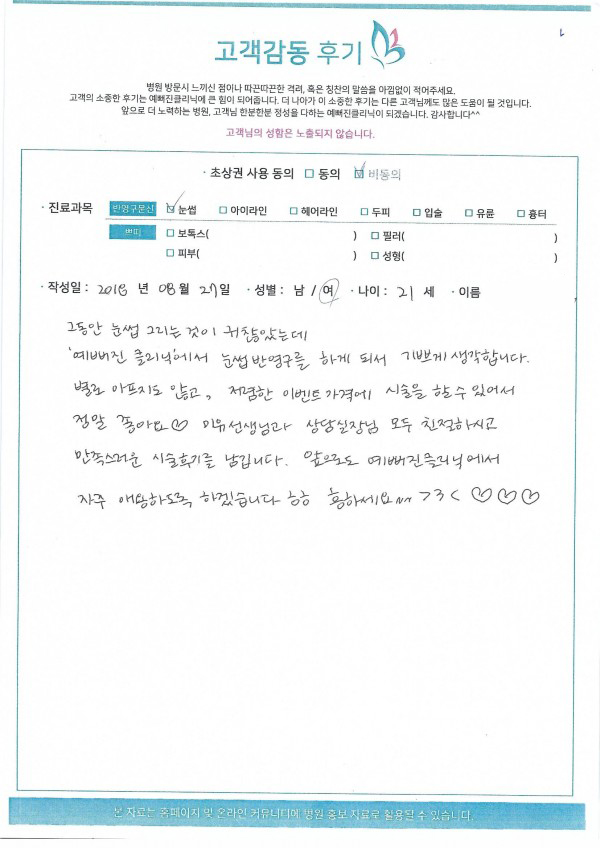 고객감동 후기
병원 방문시 느끼신 점이나 따끈따끈한 격려, 혹은 칭찬의 말씀을 아낌없이 적어주세요.
고객의 소중한 후기는 예뻐진클리닉에 큰 힘이 되어줍니다. 더 나아가 이 소중한 후기는 다른 고객님께도 많은 도움이 될 것입니다.
앞으로 더 노력하는 병원, 고객님 한분한분 정성을 다하는 예뻐진클리닉이 되겠습니다. 감사합니다^^
고객님의 성함은 노출되지 않습니다.
· 초상권 사용 동의 □ 동의 ☑ 비동의
· 진료과목 반영구문신 ☑ 눈썹 □ 아이라인 □ 헤어라인 □ 두피 □ 입술 □ 유륜 □ 흉터
쁘띠 □ 보톡스( ) □ 필러( )
□ 피부( ) □ 성형( )
· 작성일 : 2018 년 08 월 27 일 · 성별 : 남 / 여 · 나이 : 21 세 · 이름
그동안 눈썹 그리는 것이 귀찮았는데
'예뻐진 클리닉'에서 눈썹 반영구를 하게 되서 기쁘게 생각합니다.
별로 아프지도 않고, 저렴한 이벤트가격에 시술을 할 수 있어서
정말 좋아요♡ 미유선생님과 상담실장님 모두 친절하시고
만족스러운 시술후기를 남깁니다. 앞으로도 예뻐진클리닉에서
자주 애용하도록 하겠습니다 ㅎㅎ 흥하세요~ >3< ♡♡♡
본 자료는 홈페이지 및 온라인 커뮤니티에 병원 홍보 자료로 활용될 수 있습니다.